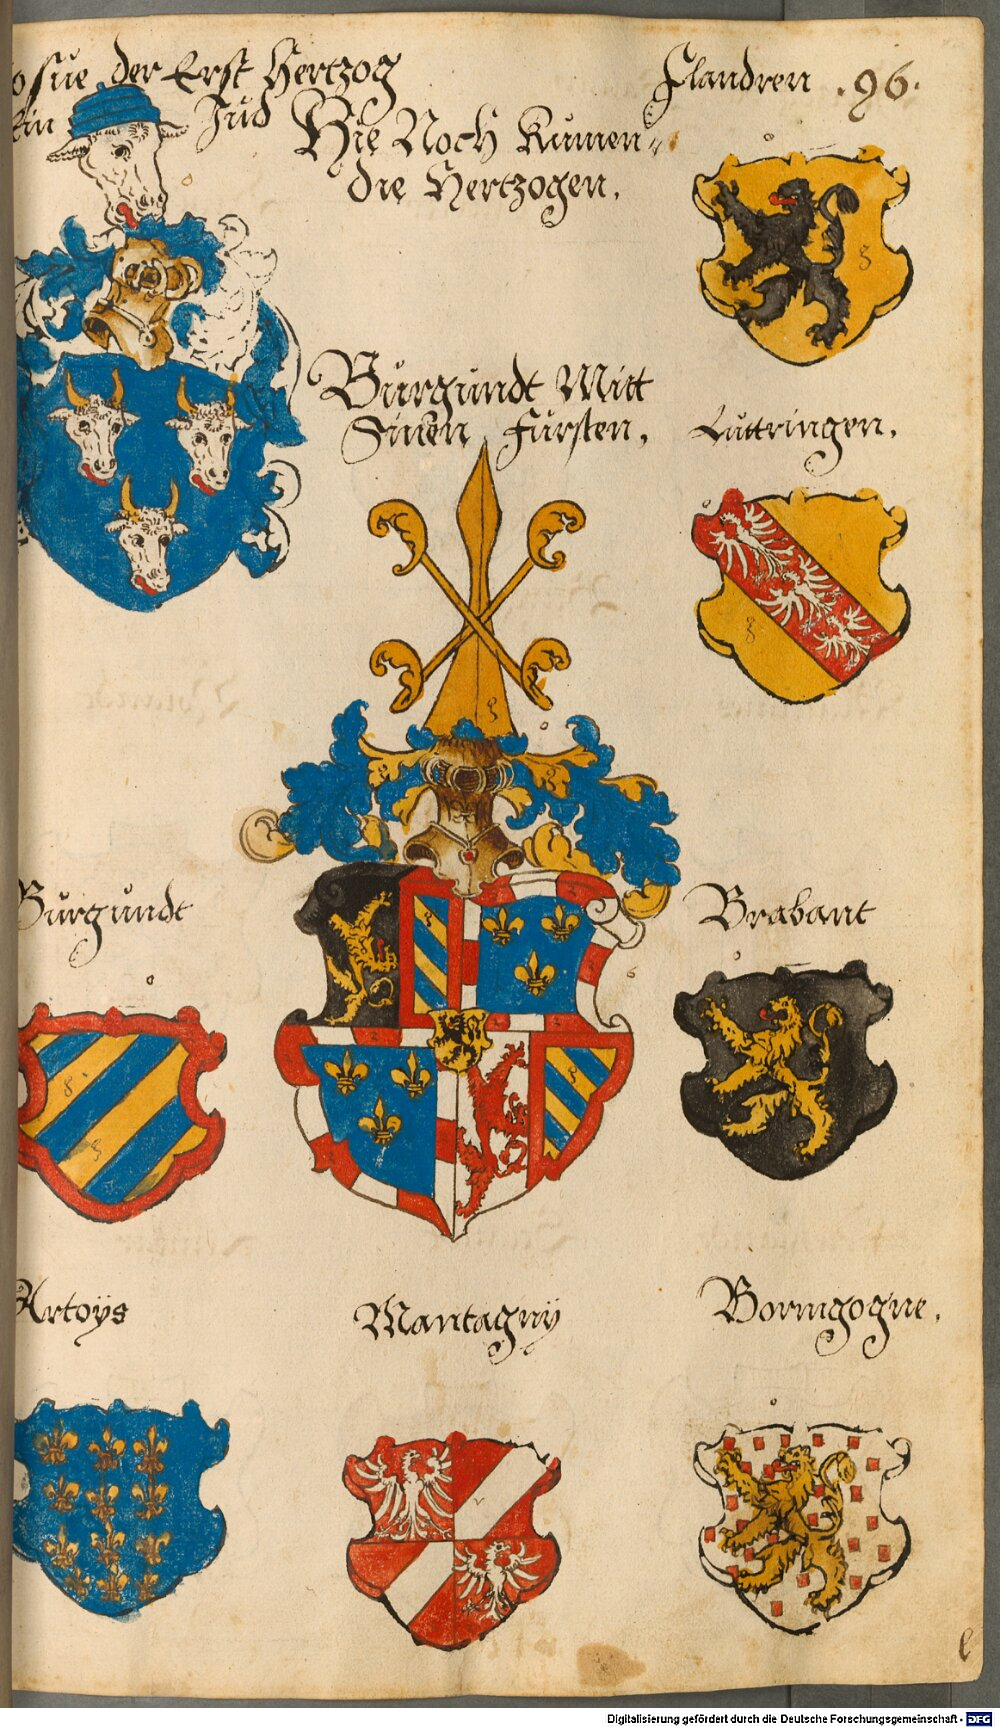 osue der Erst Hertzog
Ein Jüd
Flandren .96.
Hie Noch Kumen-
die Hertzogen.
Burgundt Mitt
Sinen fursten.
Luttringen.
Burgundt
Brabant
Artoÿs
Mantagnÿ
Borngogne.
e
Digitalisierung gefördert durch die Deutsche Forschungsgemeinschaft - DFG